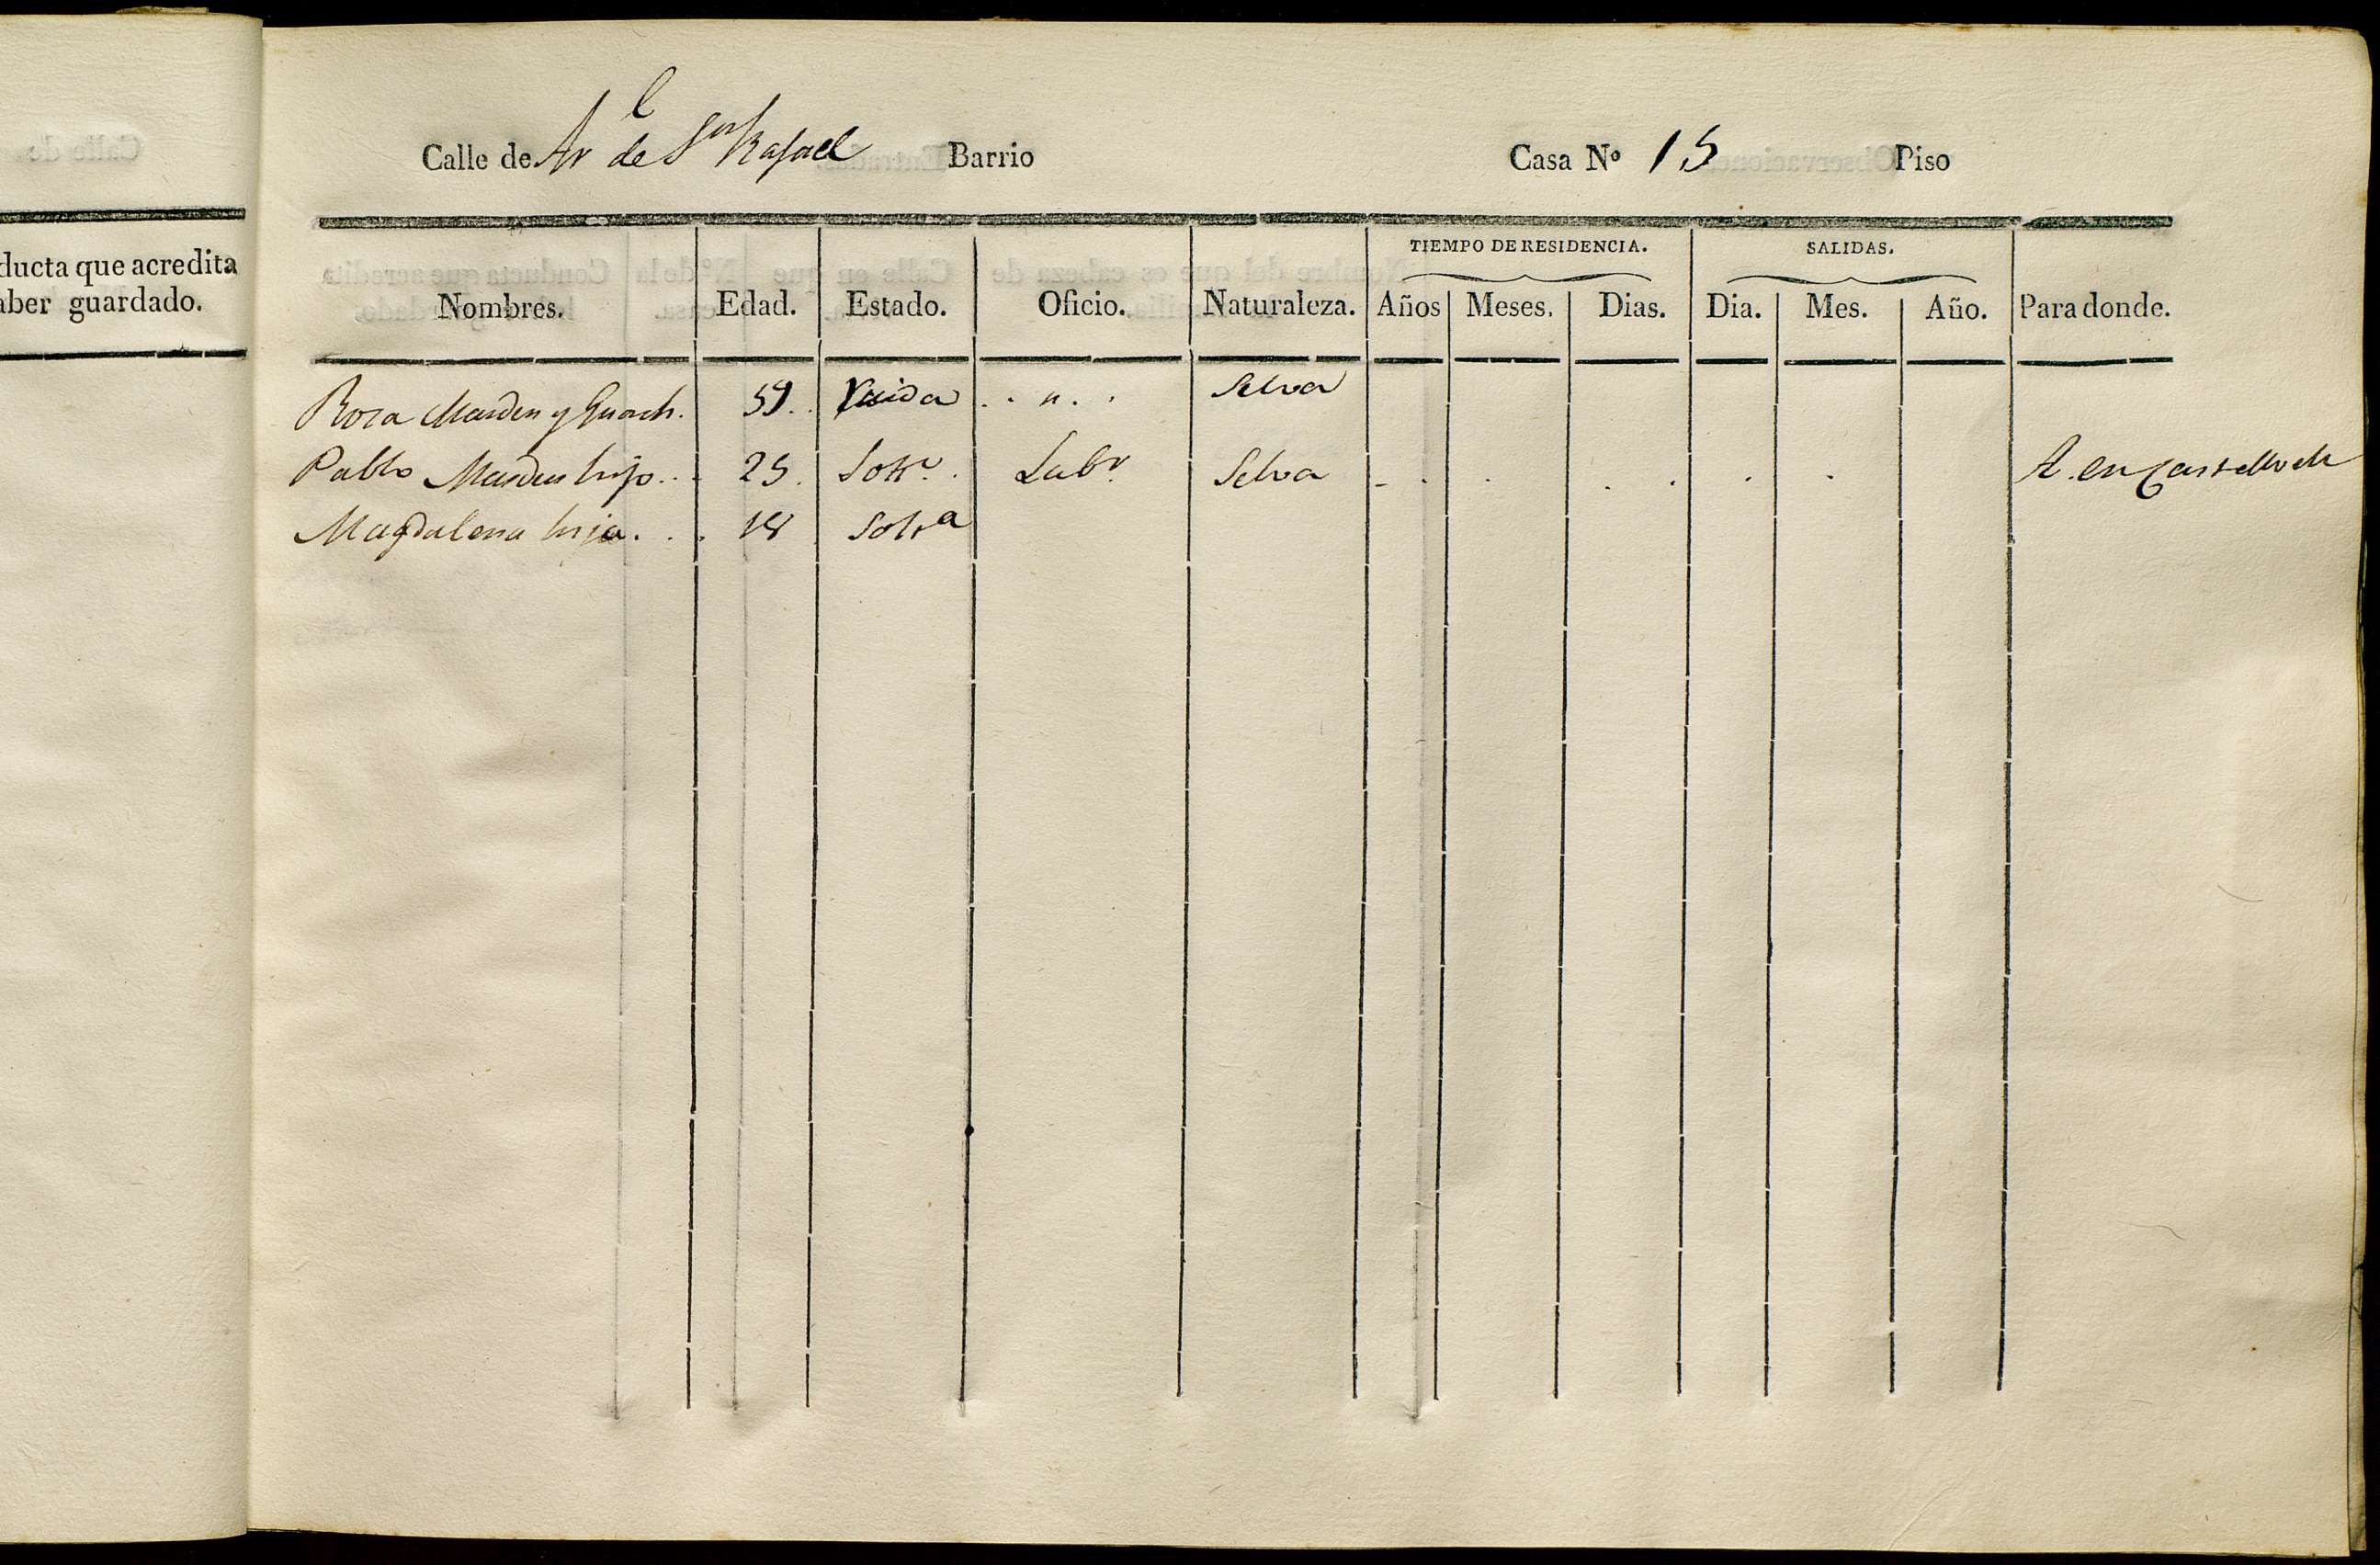 ducta que acredita
aber guardado.
Calle de Arl de Sn Rafael Barrio Casa Nº 15 Piso
TIEMPO DE RESIDENCIA. SALIDAS.
Nombres. Edad. Estado. Oficio. Naturaleza. Años Meses. Dias. Dia. Mes. Año. Para donde.
Rosa Masden y Guasch. 59. Viuda . . " . . Selva
Pablo Masdeu hijo . . . 25. Soltº. Labr. Selva A. en Castellvell
Magdalena hija . . . 18 Soltª